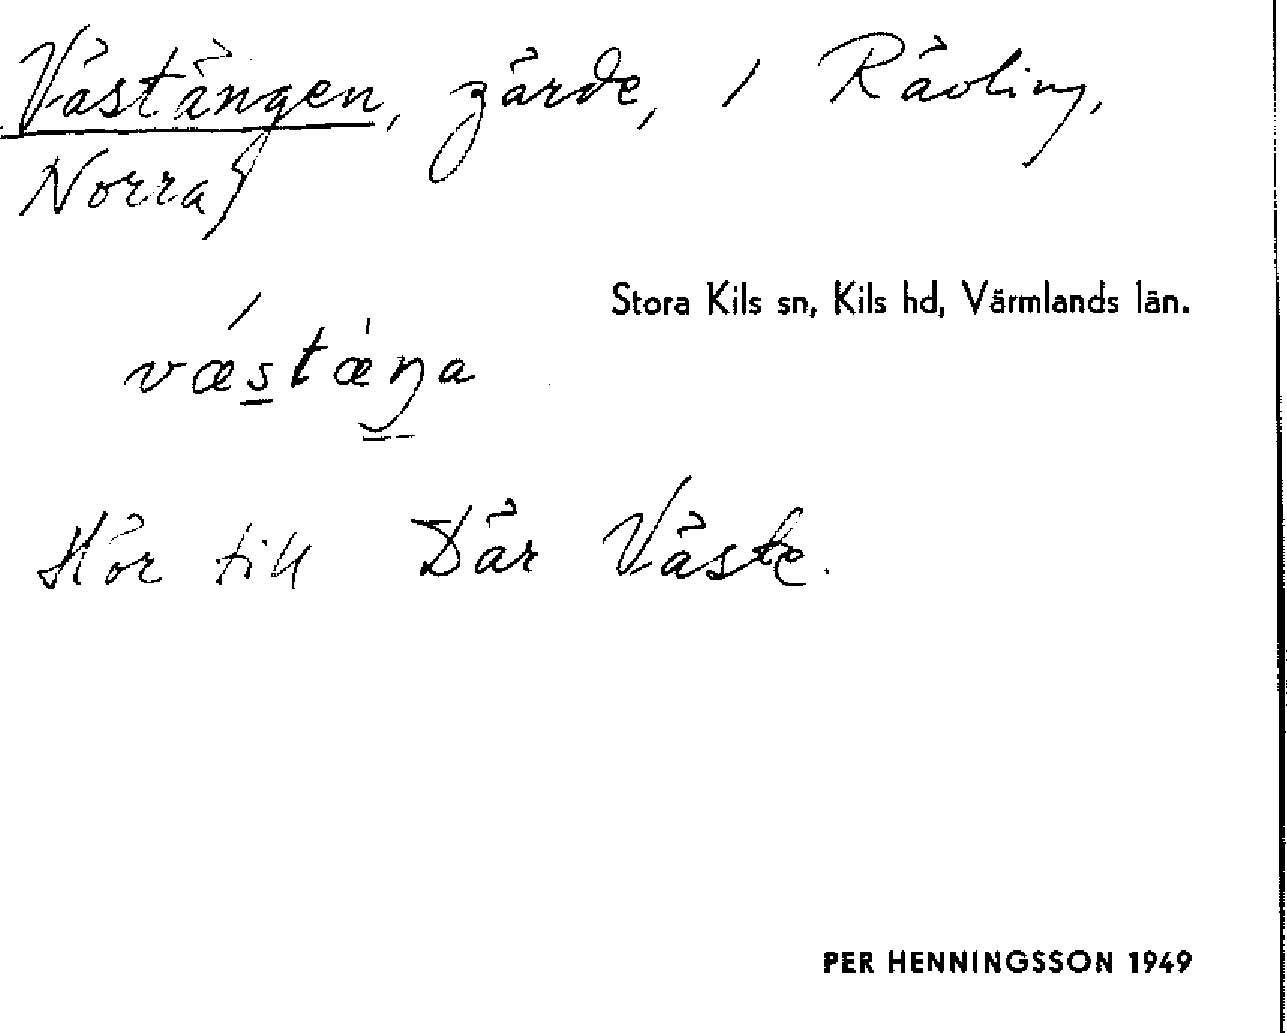 Västängen, gärde, / Rävling,
Norra
Stora Kils sn, Kils hd, Värmlands län.
væ´stæ`ŋa
Hör till Där Väste.
PER HENNINGSSON 1949